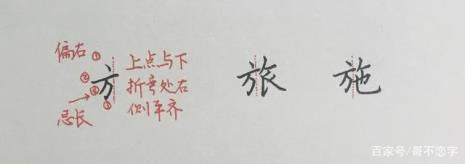 偏右
①
②
④
③
忌长
方
上点与下
折弯处右
侧平齐
旅
施
百家号/哥不恋字